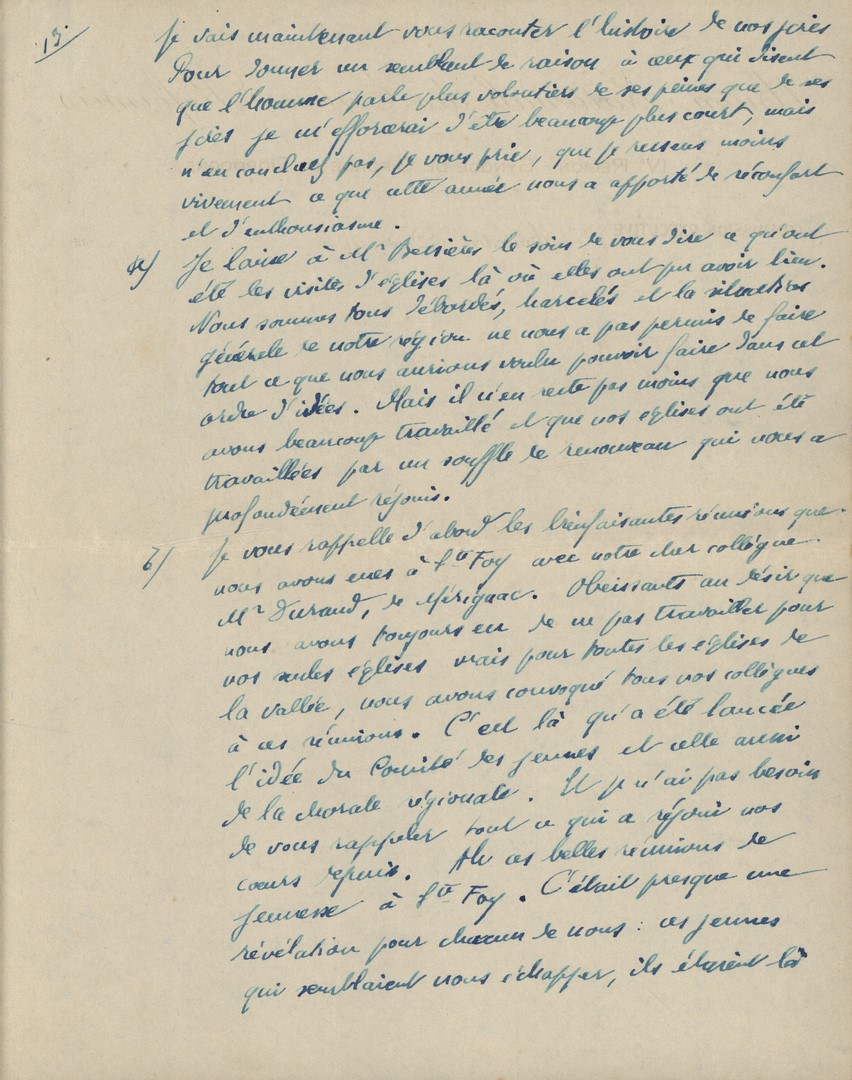 13/
Je vais maintenant vous raconter l'histoire de nos joies
Pour donner un semblant de raison à ceux qui disent
que l'homme parle plus volontiers de ses peines que de ses
joies je m'efforcerai d'être beaucoup plus court, mais
n'en concluez pas, je vous prie, que je ressens moins
vivement ce que cette année nous a apporté de réconfort
et d'enthousiasme.
a) Je laisse à Mr Bessières le soin de vous dire ce qu'ont
été les visites d'églises là où elles ont pu avoir lieu.
Nous sommes tous débordés, harcelés et la situation
générale de notre région ne nous a pas permis de faire
tout ce que nous aurions voulu pouvoir faire dans cet
ordre d'idées. Mais il n'en reste pas moins que nous
avons beaucoup travaillé et que nos églises ont été
travaillées par un souffle de renouveau qui nous a
profondément réjouis.
b) Je vous rappelle d'abord les bienfaisantes réunions que
nous avons eues à Ste Foy avec notre cher collègue
Mr Durand, de Mérignac. Obeissants au désir que
nous avons toujours eu de ne pas travailler pour
nos seules églises mais pour toutes les églises de
la vallée, nous avons convoqué tous nos collègues
à ces réunions. C'est là qu'a été lancée
l'idée du Comité des jeunes et celle aussi
de la chorale régionale. Et je n'ai pas besoin
de vous rappeler tout ce qui a réjoui nos
cœurs depuis. Ah ces belles réunions de
jeunesse à Ste Foy. C'était presque une
révélation pour chacun de nous : ces jeunes
qui semblaient nous échapper, ils étaient là